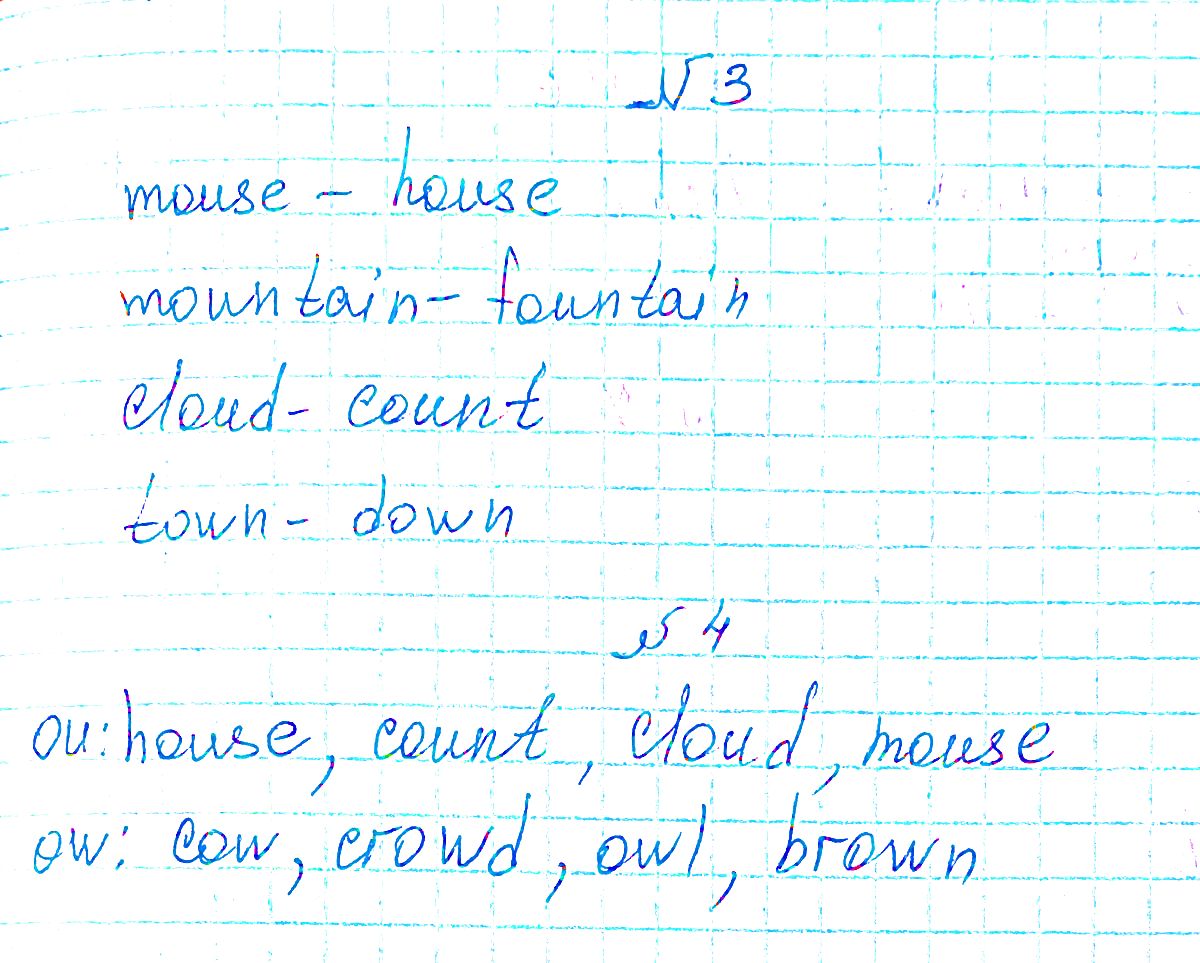 № 3
mouse - house
mountain - fountain
cloud - count
town - down
№ 4
ou: house, count, cloud, mouse
ow: cow, crowd, owl, brown